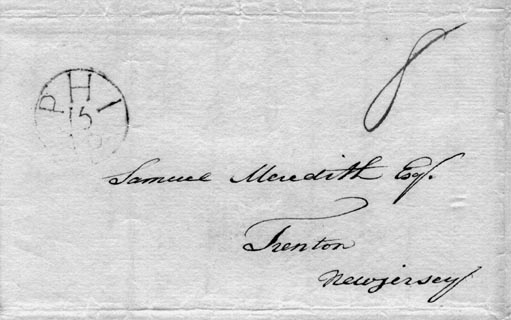 8
PHI
15
Samuel Meredith Esqr.
Trenton
Newjersey